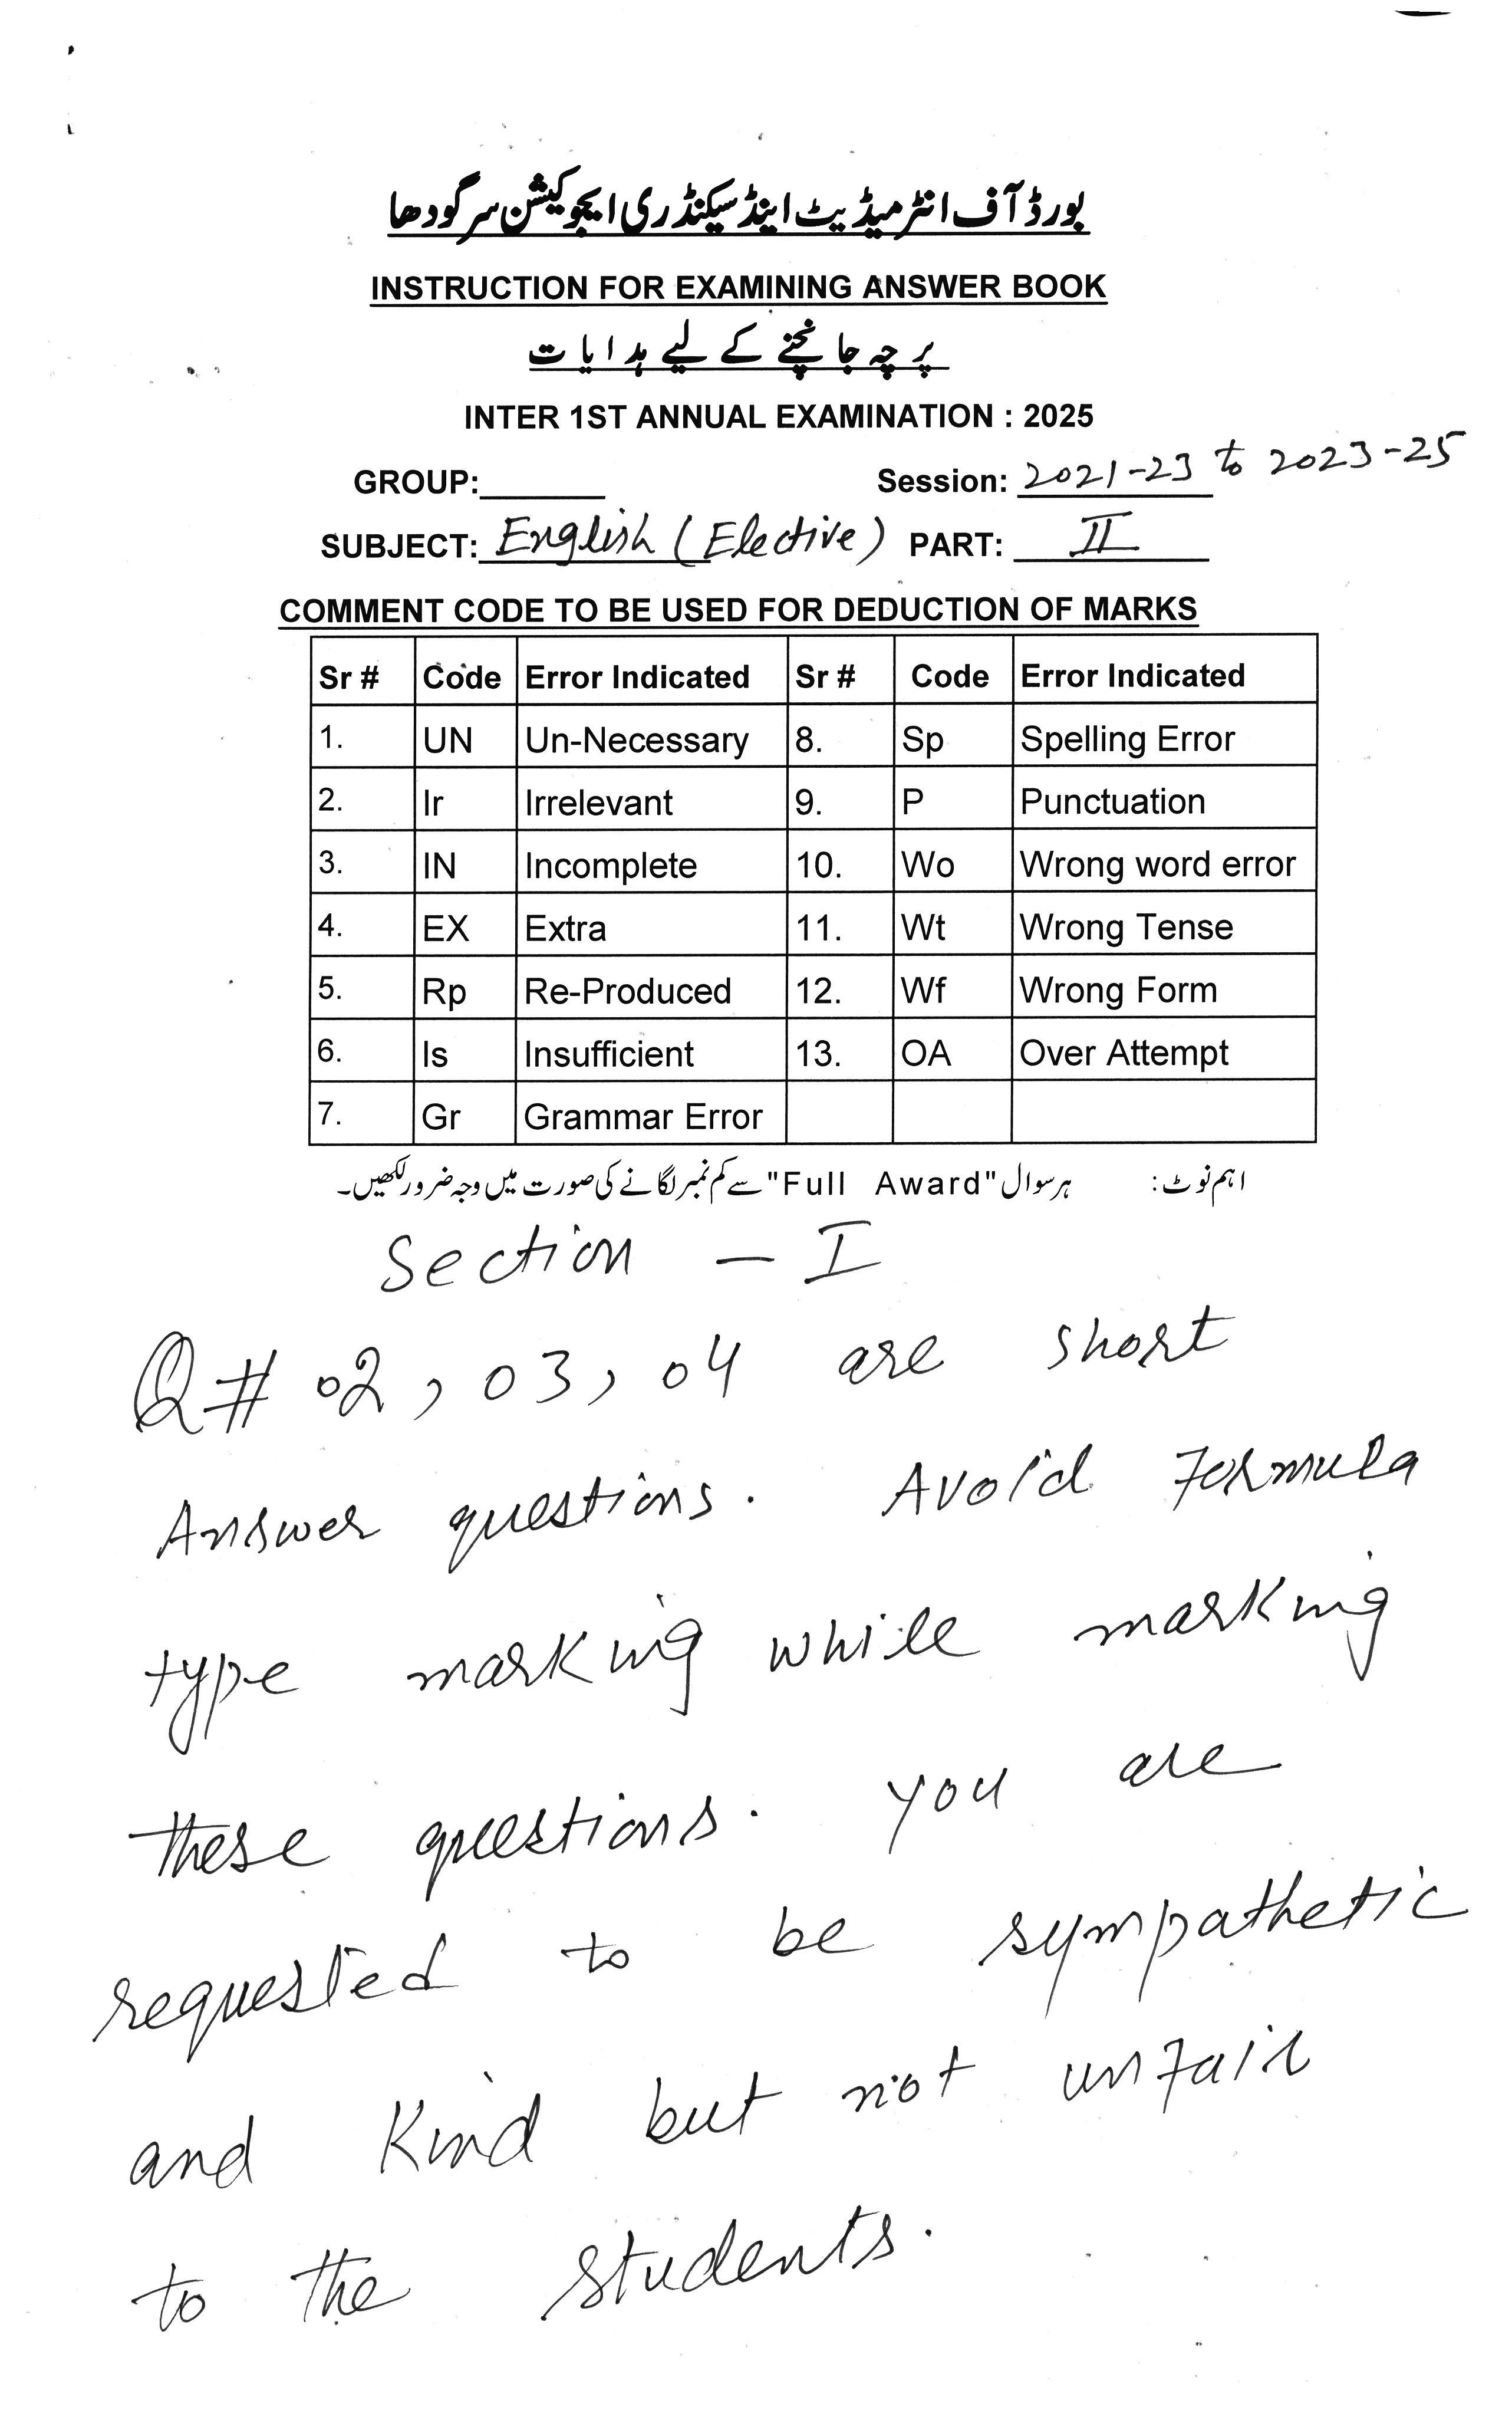 بورڈ آف انٹرمیڈیٹ اینڈ سیکنڈری ایجوکیشن سرگودھا
INSTRUCTION FOR EXAMINING ANSWER BOOK
پرچہ جانچنے کے لیے ہدایات
INTER 1ST ANNUAL EXAMINATION : 2025
GROUP:______ Session: 2021-23 to 2023-25
SUBJECT: English (Elective) PART: II
COMMENT CODE TO BE USED FOR DEDUCTION OF MARKS
Sr # Code Error Indicated Sr # Code Error Indicated
1. UN Un-Necessary 8. Sp Spelling Error
2. Ir Irrelevant 9. P Punctuation
3. IN Incomplete 10. Wo Wrong word error
4. EX Extra 11. Wt Wrong Tense
5. Rp Re-Produced 12. Wf Wrong Form
6. Is Insufficient 13. OA Over Attempt
7. Gr Grammar Error
اہم نوٹ: ہر سوال "Full Award" سے کم نمبر لگانے کی صورت میں وجہ ضرور لکھیں۔
Section - I
Q# 02, 03, 04 are short
Answer questions. Avoid Formula
type marking while marking
these questions. you are
requested to be sympathetic
and Kind but not unfair
to the students.